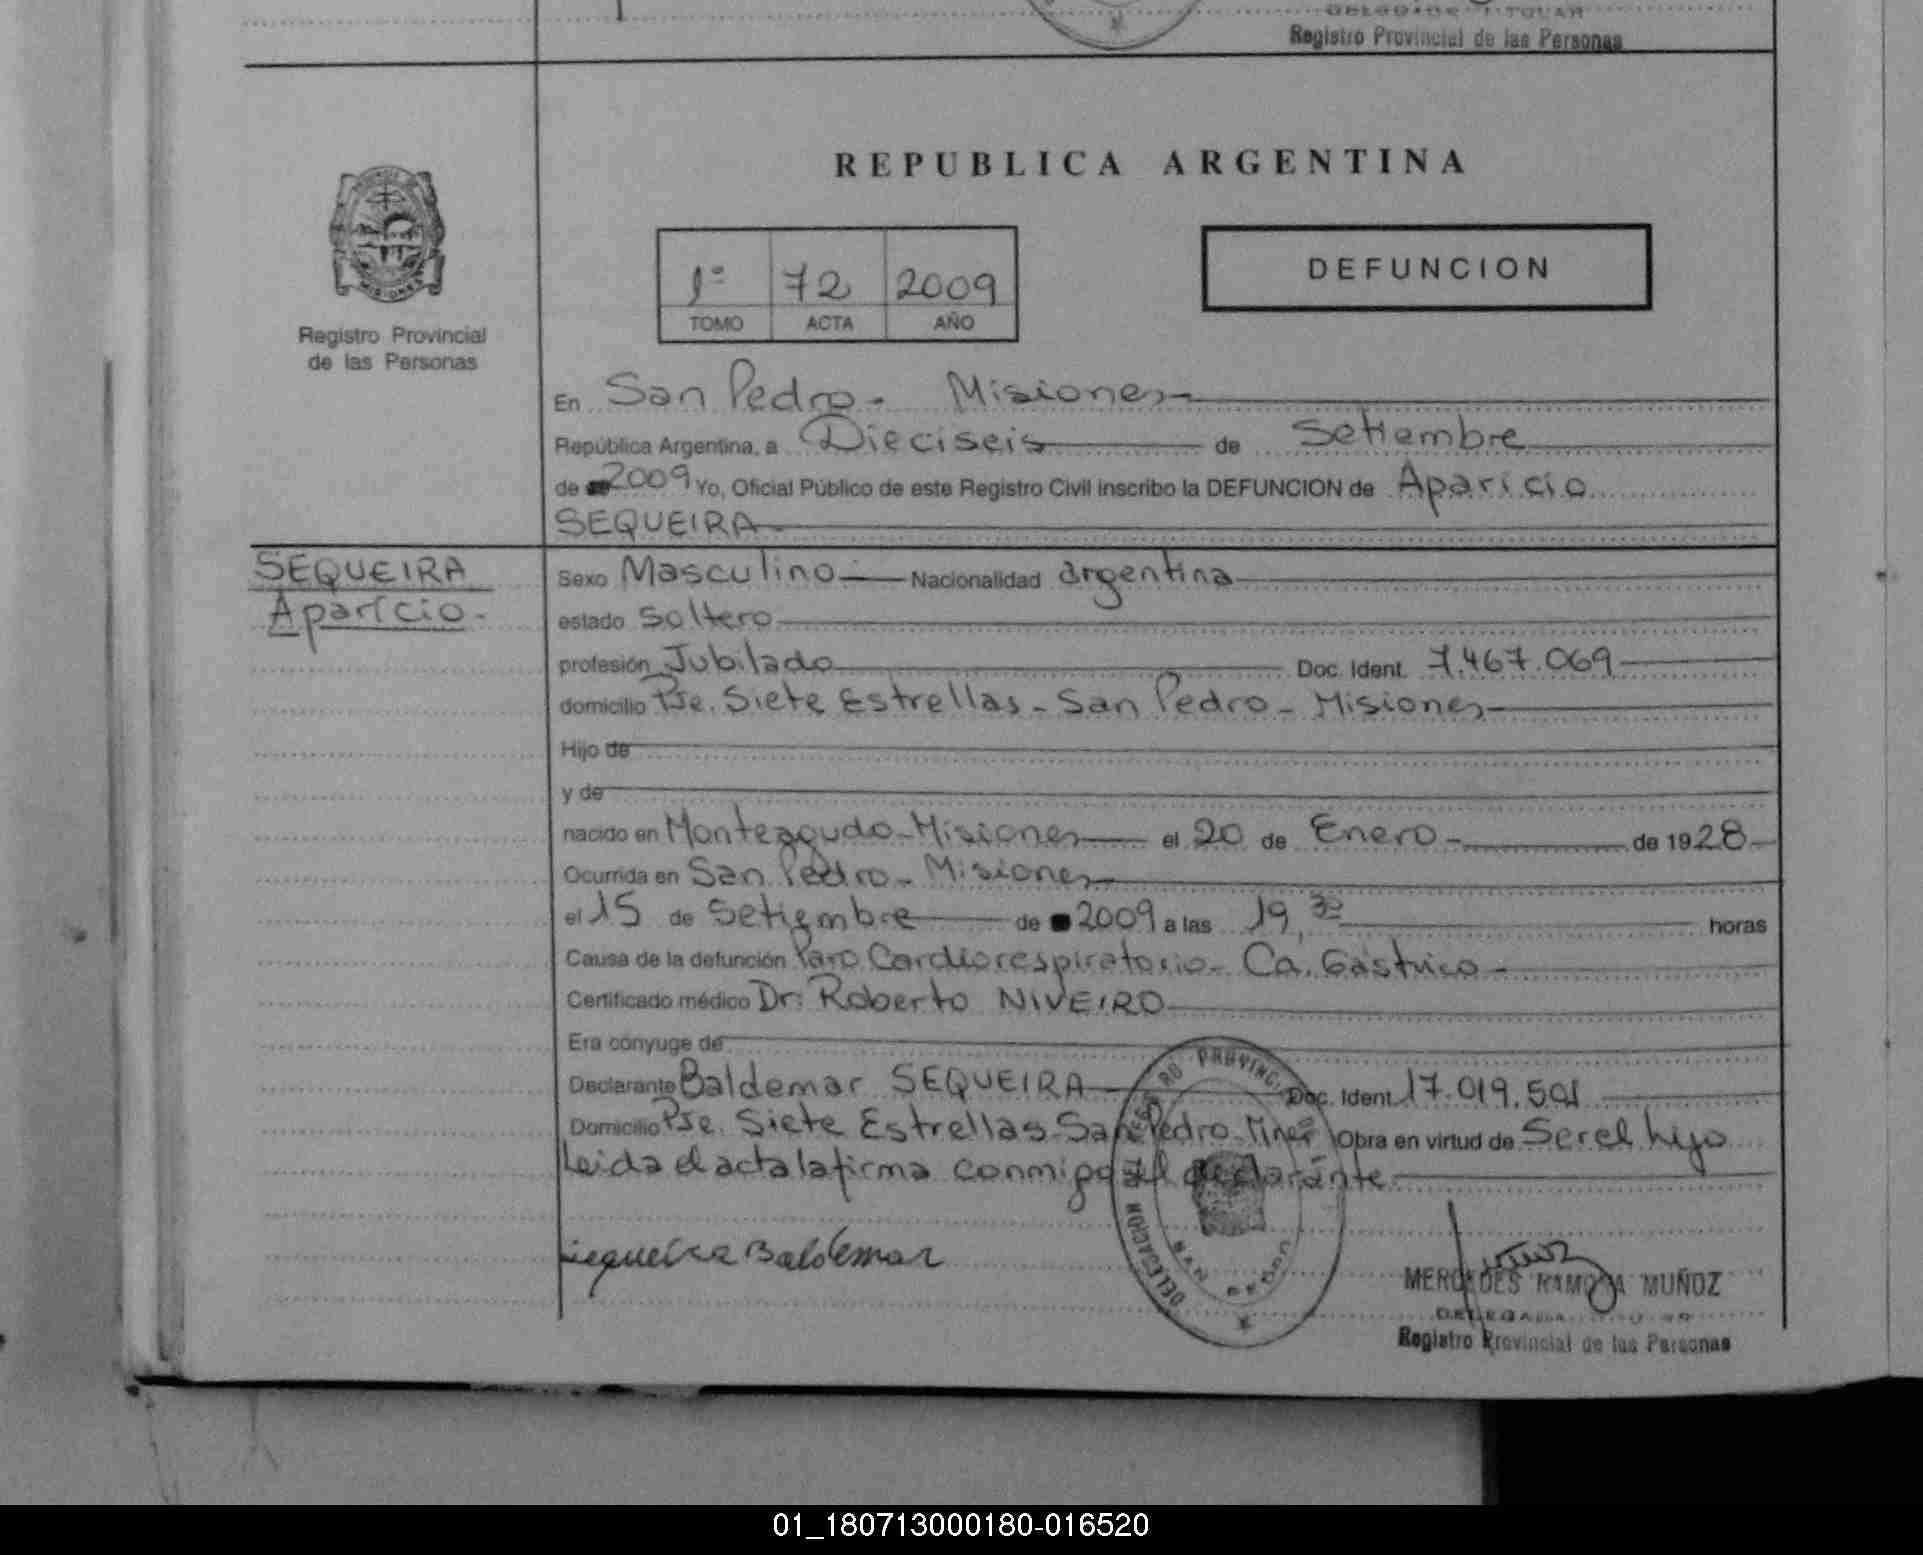 Registro Provincial de las Personas
REPUBLICA ARGENTINA
MISIONES
Registro Provincial
de las Personas
1º 72 2009
TOMO ACTA AÑO
DEFUNCION
En San Pedro - Misiones
República Argentina, a Dieciseis de Setiembre
de 2009 Yo, Oficial Público de este Registro Civil inscribo la DEFUNCION de Aparicio
SEQUEIRA
SEQUEIRA
Aparicio.-
Sexo Masculino Nacionalidad argentina
estado Soltero
profesión Jubilado Doc. Ident. 7.467.069
domicilio Pje. Siete Estrellas - San Pedro - Misiones
Hijo de
y de
nacido en Monteagudo - Misiones el 20 de Enero de 1928
Ocurrida en San Pedro - Misiones
el 15 de Setiembre de 2009 a las 19,30 horas
Causa de la defunción Paro Cardiorespiratorio - Ca. Gástrico -
Certificado médico Dr. Roberto NIVEIRO
Era cónyuge de
Declarante Baldemar SEQUEIRA Doc. Ident. 17.019.501
Domicilio Pje. Siete Estrellas - San Pedro - Mnes Obra en virtud de Ser el hijo
Leida el acta la firma conmigo el declarante
Sequeira Baldemar
DELEGACION SAN PEDRO
MERCEDES RAMONA MUÑOZ
DELEGADA
Registro Provincial de las Personas
01_180713000180-016520